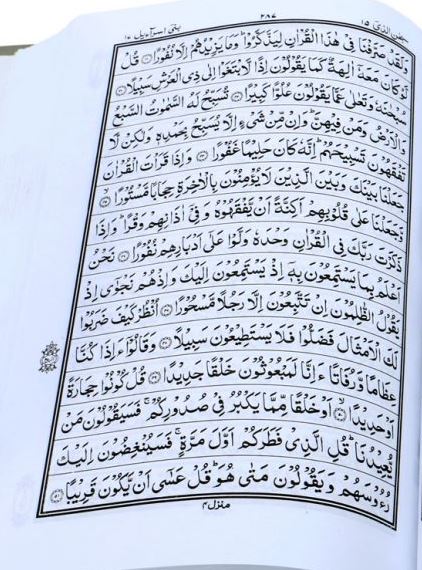 سبحن الذی ۱۵ ۲۸۷ بنی اسرآءیل ۱۷
وَلَقَدْ صَرَّفْنَا فِیْ هٰذَا الْقُرْاٰنِ لِیَذَّكَّرُوْا ؕ وَمَا یَزِیْدُهُمْ اِلَّا نُفُوْرًا ﴿۴۱﴾ قُلْ
لَّوْ كَانَ مَعَهٗۤ اٰلِهَةٌ كَمَا یَقُوْلُوْنَ اِذًا لَّابْتَغَوْا اِلٰی ذِی الْعَرْشِ سَبِیْلًا ﴿۴۲﴾
سُبْحٰنَهٗ وَتَعٰلٰی عَمَّا یَقُوْلُوْنَ عُلُوًّا كَبِیْرًا ﴿۴۳﴾ تُسَبِّحُ لَهُ السَّمٰوٰتُ السَّبْعُ
وَالْاَرْضُ وَمَنْ فِیْهِنَّ ؕ وَاِنْ مِّنْ شَیْءٍ اِلَّا یُسَبِّحُ بِحَمْدِهٖ وَلٰكِنْ لَّا
تَفْقَهُوْنَ تَسْبِیْحَهُمْ ؕ اِنَّهٗ كَانَ حَلِیْمًا غَفُوْرًا ﴿۴۴﴾ وَاِذَا قَرَاْتَ الْقُرْاٰنَ
جَعَلْنَا بَیْنَكَ وَبَیْنَ الَّذِیْنَ لَا یُؤْمِنُوْنَ بِالْاٰخِرَةِ حِجَابًا مَّسْتُوْرًا ﴿۴۵﴾
وَّجَعَلْنَا عَلٰی قُلُوْبِهِمْ اَكِنَّةً اَنْ یَّفْقَهُوْهُ وَفِیْۤ اٰذَانِهِمْ وَقْرًا ؕ وَاِذَا
ذَكَرْتَ رَبَّكَ فِی الْقُرْاٰنِ وَحْدَهٗ وَلَّوْا عَلٰۤی اَدْبَارِهِمْ نُفُوْرًا ﴿۴۶﴾ نَحْنُ
اَعْلَمُ بِمَا یَسْتَمِعُوْنَ بِهٖۤ اِذْ یَسْتَمِعُوْنَ اِلَیْكَ وَاِذْ هُمْ نَجْوٰۤی اِذْ
یَقُوْلُ الظّٰلِمُوْنَ اِنْ تَتَّبِعُوْنَ اِلَّا رَجُلًا مَّسْحُوْرًا ﴿۴۷﴾ اُنْظُرْ كَیْفَ ضَرَبُوْا
لَكَ الْاَمْثَالَ فَضَلُّوْا فَلَا یَسْتَطِیْعُوْنَ سَبِیْلًا ﴿۴۸﴾ وَقَالُوْۤا ءَاِذَا كُنَّا
عِظَامًا وَّرُفَاتًا ءَاِنَّا لَمَبْعُوْثُوْنَ خَلْقًا جَدِیْدًا ﴿۴۹﴾ قُلْ كُوْنُوْا حِجَارَةً
اَوْ حَدِیْدًا ﴿۵۰﴾ اَوْ خَلْقًا مِّمَّا یَكْبُرُ فِیْ صُدُوْرِكُمْ ۚ فَسَیَقُوْلُوْنَ مَنْ
یُّعِیْدُنَا ؕ قُلِ الَّذِیْ فَطَرَكُمْ اَوَّلَ مَرَّةٍ ۚ فَسَیُنْغِضُوْنَ اِلَیْكَ
رُءُوْسَهُمْ وَیَقُوْلُوْنَ مَتٰی هُوَ ؕ قُلْ عَسٰۤی اَنْ یَّكُوْنَ قَرِیْبًا ﴿۵۱﴾
منزل ۴